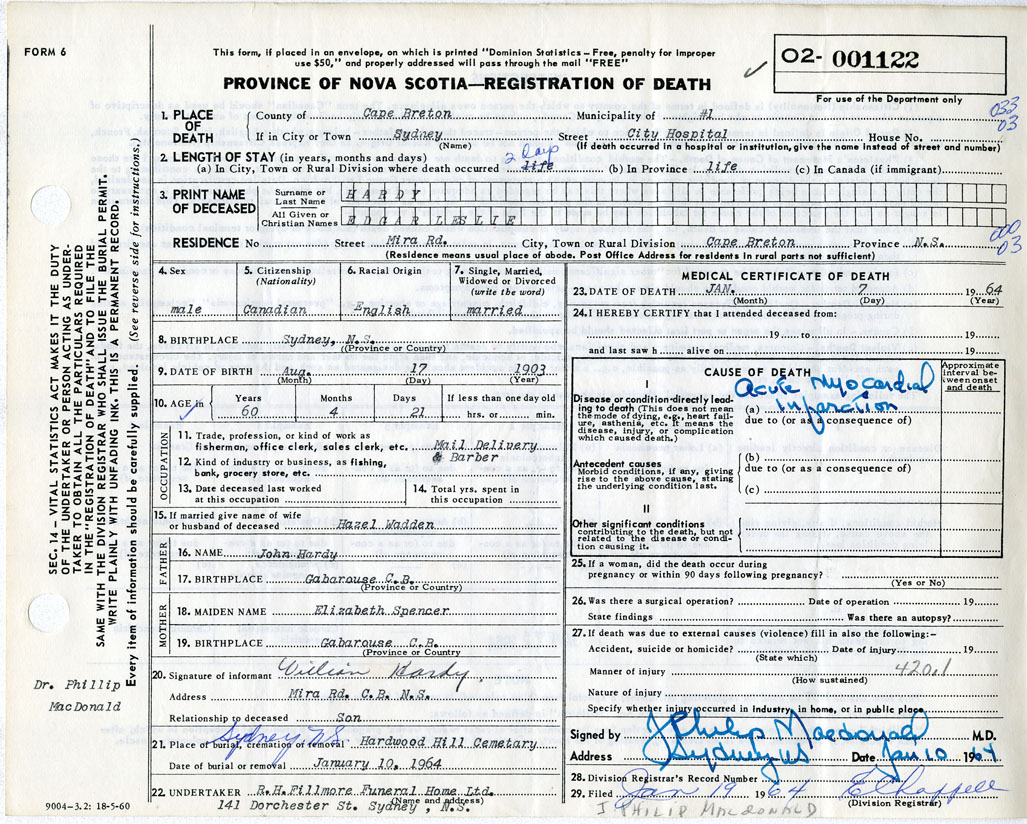 FORM 6
This form, if placed in an envelope, on which is printed "Dominion Statistics – Free, penalty for improper
use $50," and properly addressed will pass through the mail "FREE"
PROVINCE OF NOVA SCOTIA—REGISTRATION OF DEATH
O2- 001122
For use of the Department only
033
03
1. PLACE OF DEATH
County of Cape Breton Municipality of #1
If in City or Town Sydney Street City Hospital House No.
(Name) (If death occurred in a hospital or institution, give the name instead of street and number)
2. LENGTH OF STAY (in years, months and days) 2 days
(a) In City, Town or Rural Division where death occurred life (b) In Province life (c) In Canada (if immigrant)
3. PRINT NAME OF DECEASED
Surname or Last Name HARDY
All Given or Christian Names EDGAR LESLIE
000
03
RESIDENCE No Street Mira Rd. City, Town or Rural Division Cape Breton Province N.S.
(Residence means usual place of abode. Post Office Address for residents in rural parts not sufficient)
4. Sex
male
5. Citizenship
(Nationality)
Canadian
6. Racial Origin
English
7. Single, Married,
Widowed or Divorced
(write the word)
married
8. BIRTHPLACE Sydney, N.S.
(Province or Country)
9. DATE OF BIRTH Aug. 17 1903
(Month) (Day) (Year)
10. AGE in
Years Months Days If less than one day old
60 4 21 hrs. or min.
OCCUPATION
11. Trade, profession, or kind of work as
fisherman, office clerk, sales clerk, etc. Mail Delivery
& Barber
12. Kind of industry or business, as fishing,
bank, grocery store, etc.
13. Date deceased last worked
at this occupation
14. Total yrs. spent in
this occupation
15. If married give name of wife
or husband of deceased Hazel Wadden
FATHER
16. NAME John Hardy
17. BIRTHPLACE Gabarouse C.B.
(Province or Country)
MOTHER
18. MAIDEN NAME Elizabeth Spencer
19. BIRTHPLACE Gabarouse C.B.
(Province or Country)
20. Signature of informant William Hardy
Address Mira Rd. C.B. N.S.
Relationship to deceased Son
Sydney NS
21. Place of burial, cremation or removal Hardwood Hill Cemetary
Date of burial or removal January 10, 1964
22. UNDERTAKER R.H.Fillmore Funeral Home Ltd.
(Name and address)
141 Dorchester St. Sydney, N.S.
MEDICAL CERTIFICATE OF DEATH
23. DATE OF DEATH JAN. 7 1964
(Month) (Day) (Year)
24. I HEREBY CERTIFY that I attended deceased from:
19 to 19
and last saw h alive on 19
CAUSE OF DEATH
Approximate
interval between onset
and death
I
Disease or condition directly leading to death (This does not
mean the mode of dying, e.g., heart failure, asthenia, etc. It means the
disease, injury, or complication
which caused death.)
(a) Acute Myocardial
infarction
due to (or as a consequence of)
Antecedent causes
Morbid conditions, if any, giving
rise to the above cause, stating
the underlying condition last.
(b)
due to (or as a consequence of)
(c)
II
Other significant conditions
contributing to the death, but not
related to the disease or condition causing it.
25. If a woman, did the death occur during
pregnancy or within 90 days following pregnancy?
(Yes or No)
26. Was there a surgical operation? Date of operation 19
State findings Was there an autopsy?
27. If death was due to external causes (violence) fill in also the following:–
Accident, suicide or homicide? Date of injury 19
(State which)
Manner of injury 420.1
(How sustained)
Nature of injury
Specify whether injury occurred in industry, in home, or in public place
Signed by J Philip Macdonald M.D.
Address Sydney NS Date Jan 10 1964
28. Division Registrar's Record Number
29. Filed Jan 19 1964 E Chappell
(Division Registrar)
J PHILIP MACDONALD
SEC. 14 – VITAL STATISTICS ACT MAKES IT THE DUTY
OF THE UNDERTAKER OR PERSON ACTING AS UNDERTAKER TO OBTAIN ALL THE PARTICULARS REQUIRED
IN THE "REGISTRATION OF DEATH" AND TO FILE THE
SAME WITH THE DIVISION REGISTRAR WHO SHALL ISSUE THE BURIAL PERMIT.
WRITE PLAINLY WITH UNFADING INK. THIS IS A PERMANENT RECORD.
Every item of information should be carefully supplied. (See reverse side for instructions.)
Dr. Phillip
MacDonald
9004-3.2: 18-5-60